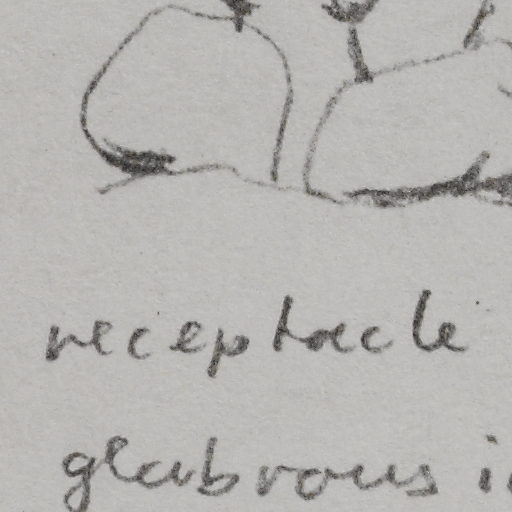 receptacle
glabrous i